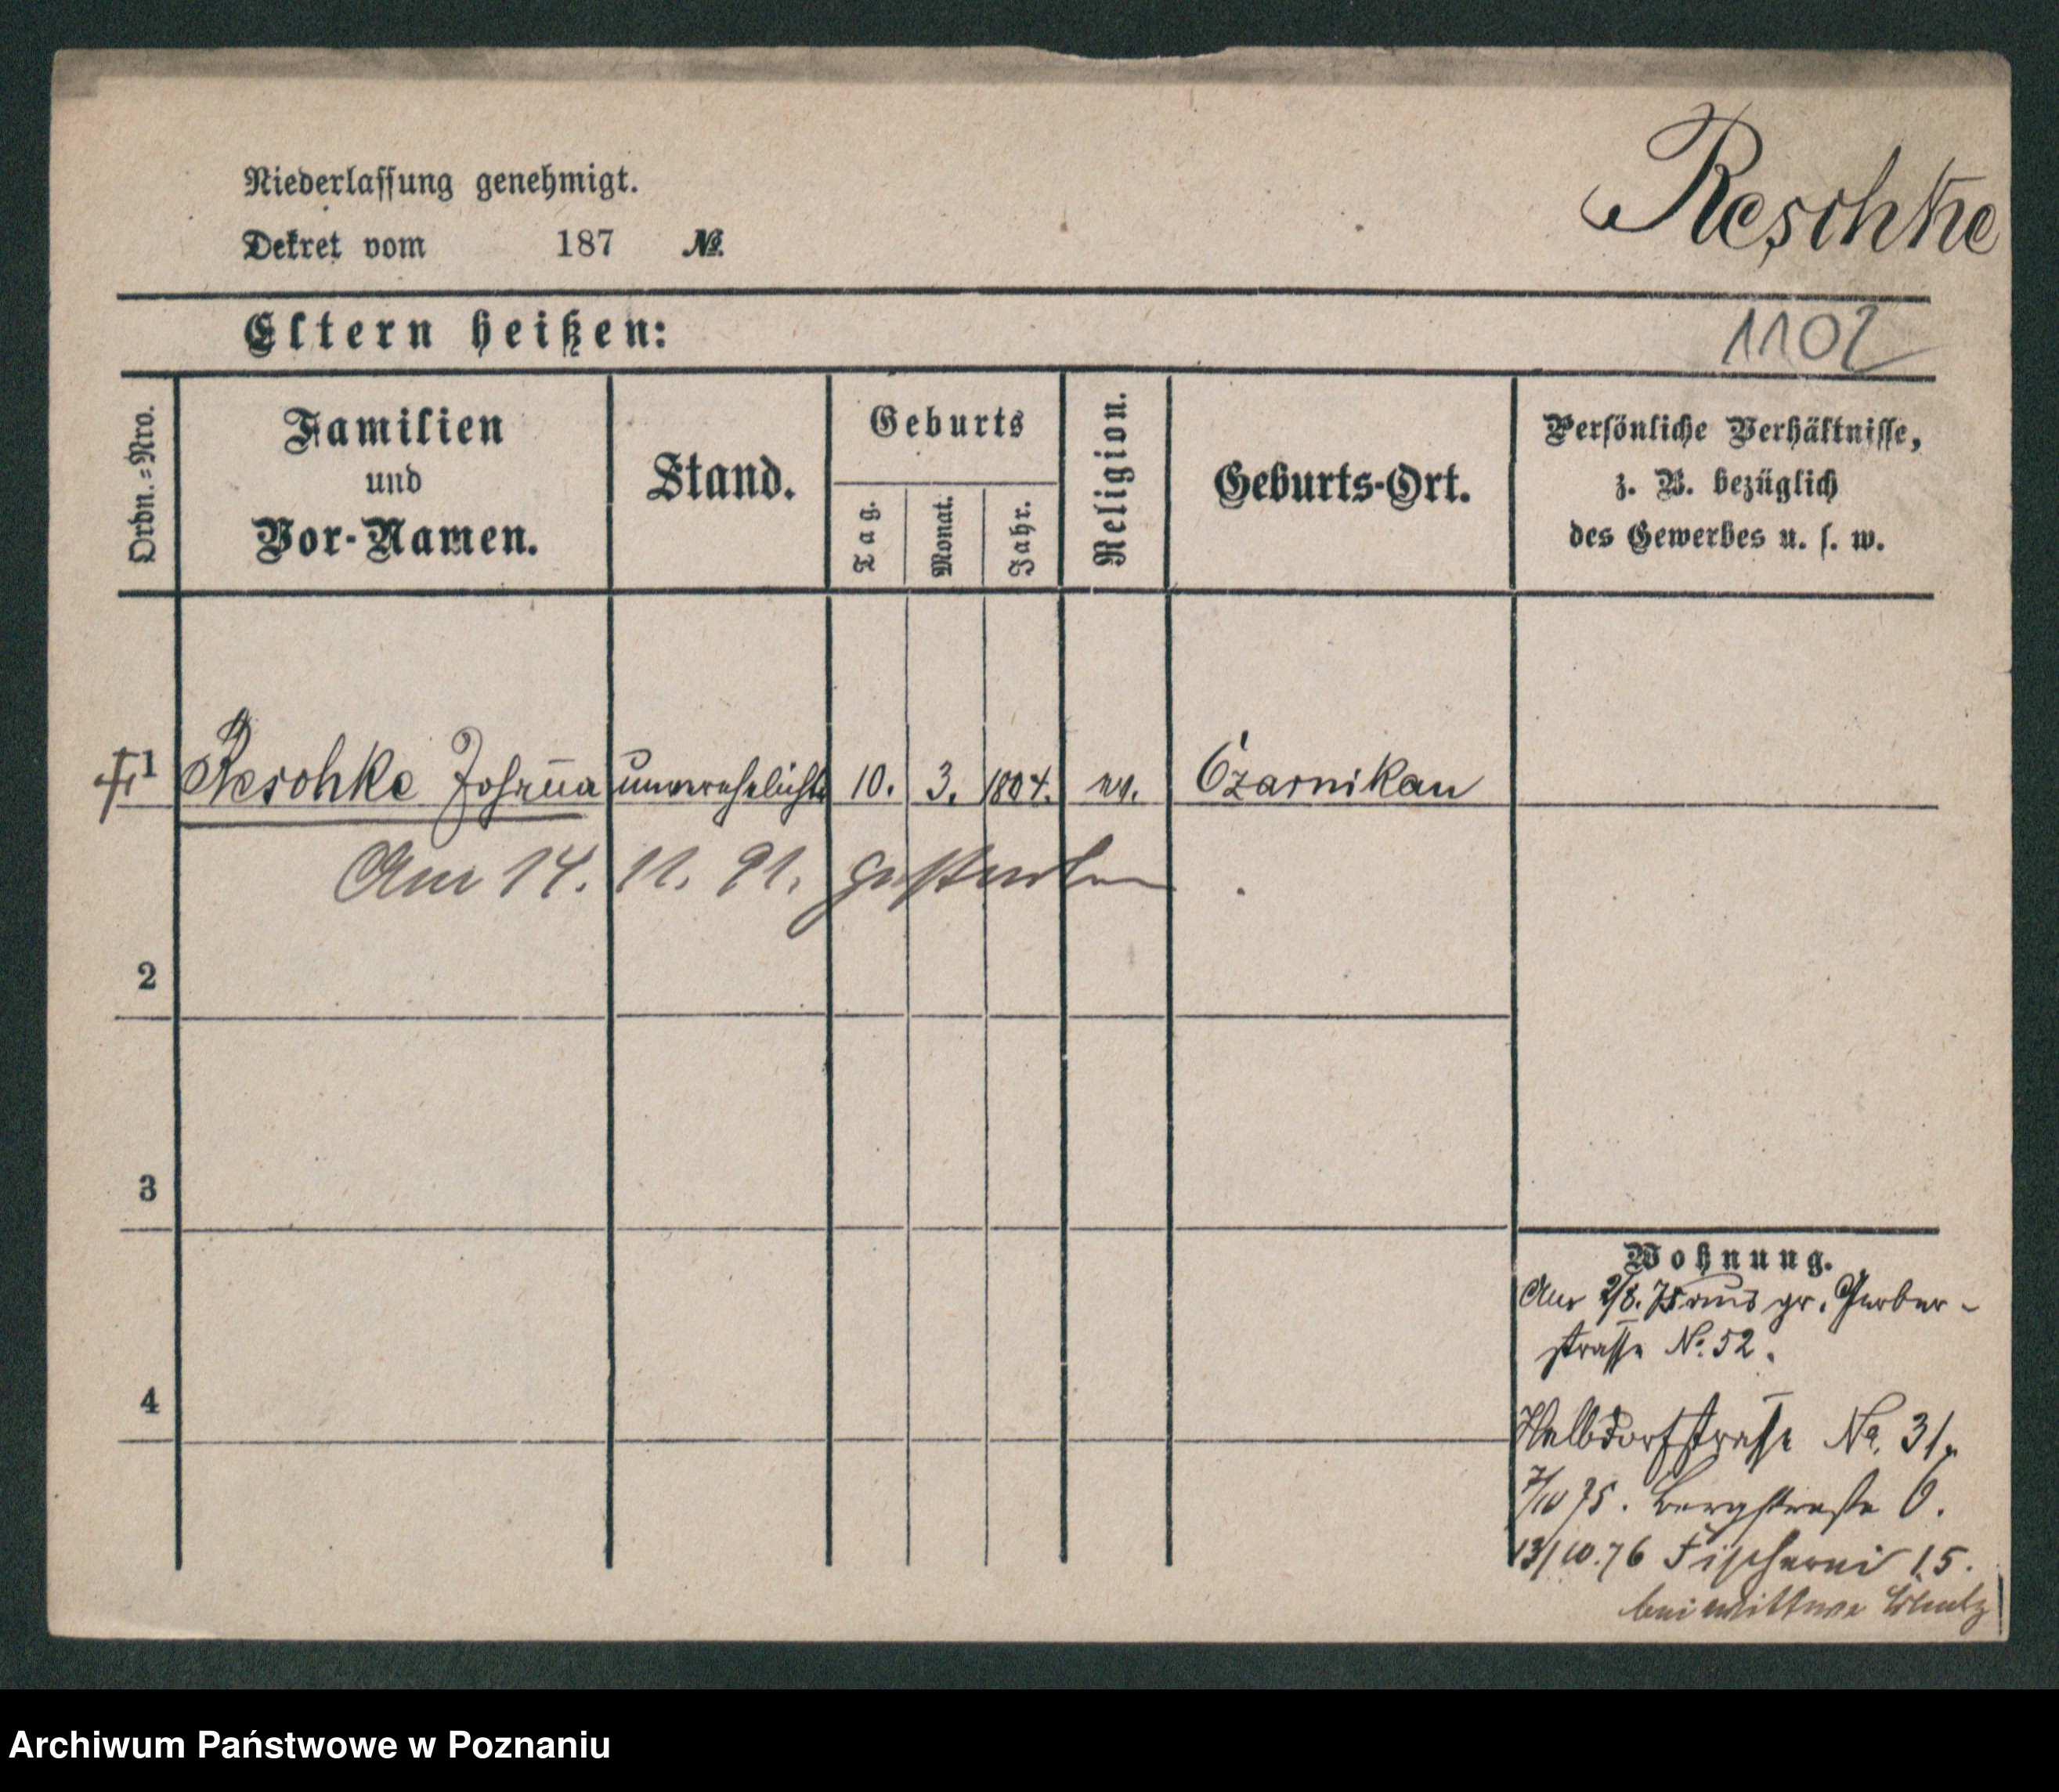 Niederlassung genehmigt.
Reschke
Dekret vom 187 №
Eltern heißen:
1102
Ordn.=Nro.
Familien
und
Vor-Namen.
Stand.
Geburts
Tag.
Monat.
Jahr.
Religion.
Geburts-Ort.
Persönliche Verhältnisse,
z. B. bezüglich
des Gewerbes u. s. w.
1 Reschke Johanna unverehelicht 10. 3. 1804. ev. Czarnikau
Am 14. 11. 91. gestorben
2
3
4
Wohnung.
Am 2/8. 75 aus gr. Gerber-
strasse No. 52.
Halbdorfstrasse No. 31.
7/10 75. Bergstrasse 6.
13/10.76 Fischerei 15.
bei Wittwe
Archiwum Państwowe w Poznaniu